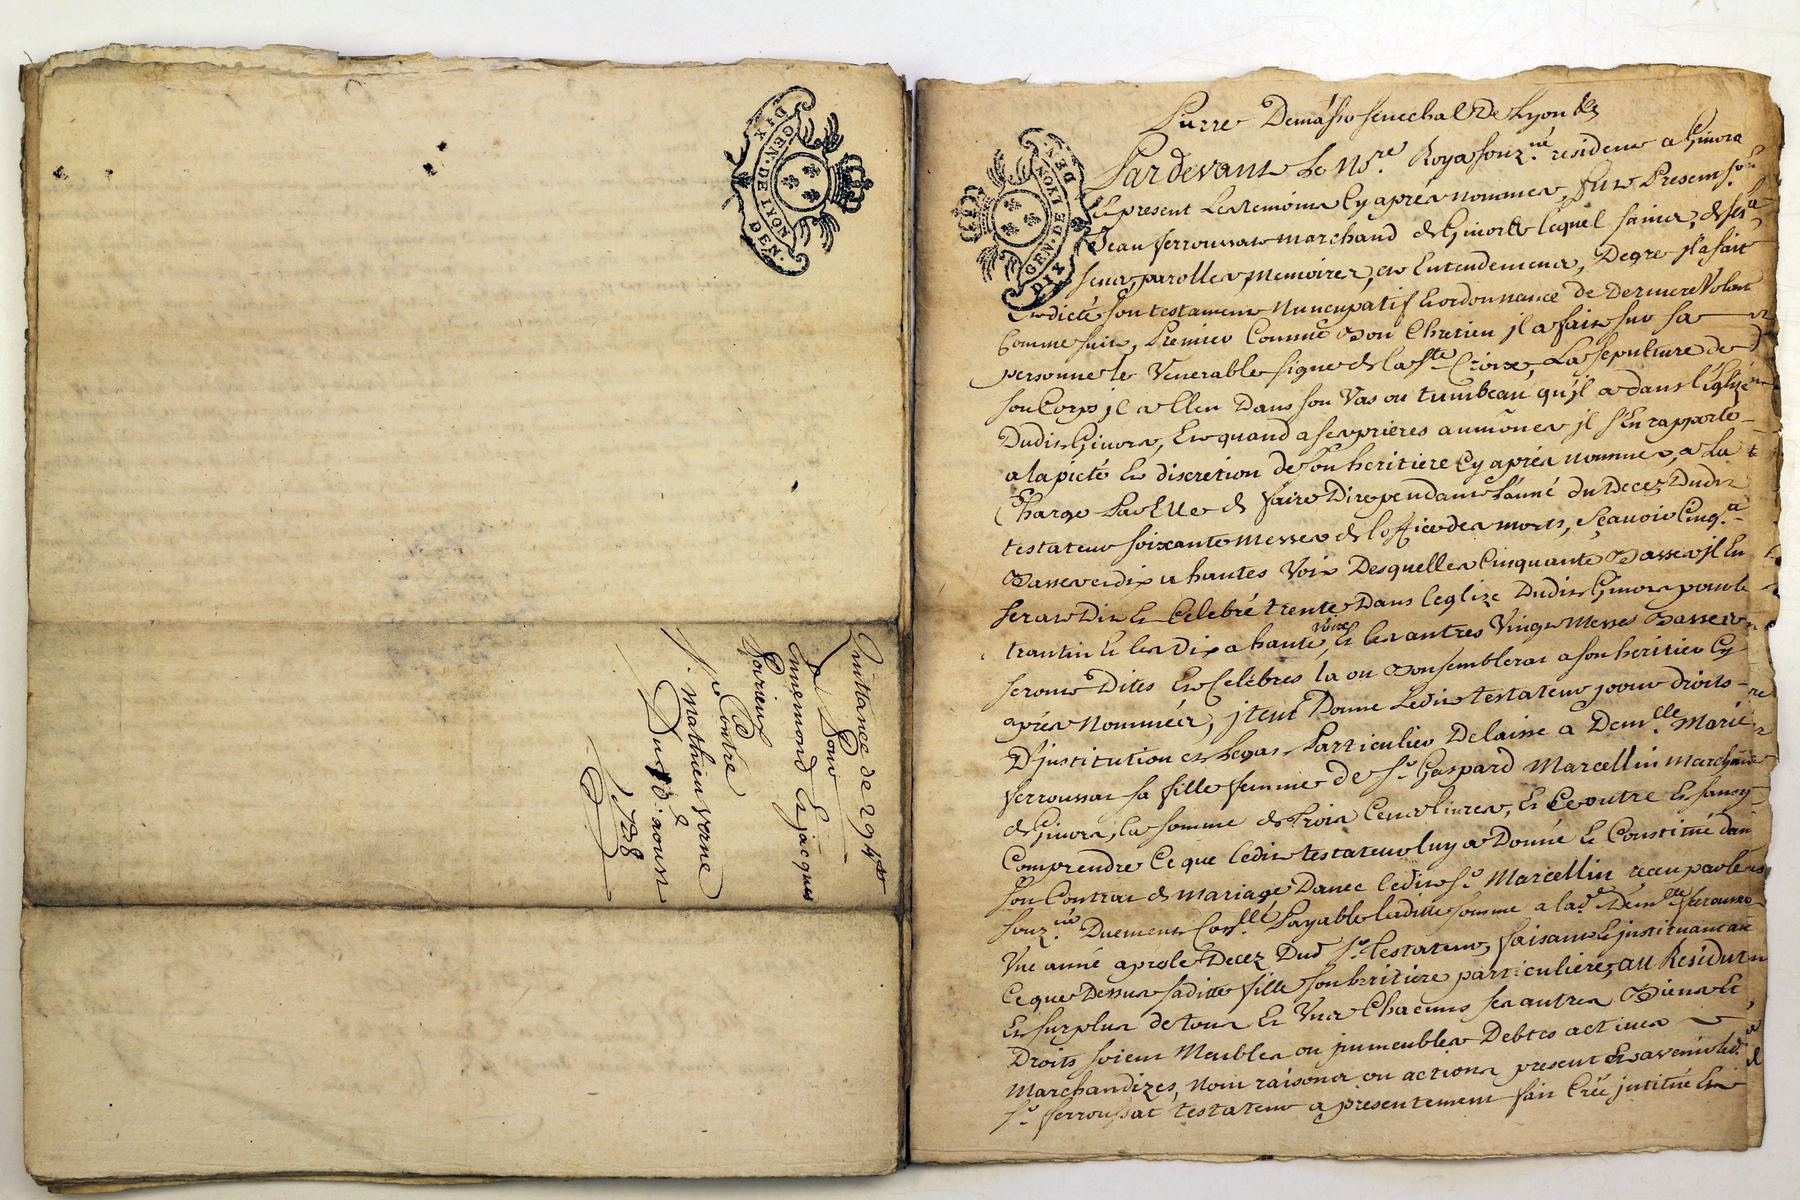 DIX
GEN. DE LYON
DEN.
Quittance de 294 ₶
Pour
Ennemond & jacques
Poirieux
Contre
Sr. mathieu verne
Du 10 aoust
GEN. DE LYON
DIX
DEN.
Senechal De Lyon
Pardevant Le Nore. Royal souz.né residant a Givors
Et present Les temoins Cy aprés nommes, fut Present sr.
Jean ferroussat marchand de Givors lequel sain de ses
sens, parolles, memoires, et Entendement, De gre jl a fait
Et dicté son testament Nuncupatif Et ordonnance de Derniere Volonté
Comme suit, Premier Comme Bon Chretien jl a fait sur sa
personne le Venerable signe de la Ste. Croix, La sepulture de
son Corps jl a Eleu Dans son Vas ou tumbeau qu'jl a dans l'Eglize
Dudit Givors, Et quand a ses prieres aumônes jl s'En rapporte
a la pieté Et discretion de son heritiere Cy aprés nommée, a La
Charge Par Elle de faire Dire pendant L'anné du Decez Dudit
testateur soixante messes de l'office des morts, sçavoir Cinq.te
Basses et dix a hautes Voix Desquelles Cinquante Basses jl En
serat Dit Et Celebré trente Dans l'eglize Dudit Givors pour le
trantin Et les Dix a haute voix, Et les autres Vingt messes Basses
seront Dites Et Celébres la ou Bon semblerat a son heritier Cy
aprés Nommée, jtem Donne Ledit testateur pour droits
D'jnstitution et Legat Particulier Delaisse a Demlle. Marie
ferroussat sa fille femme de Sr. Gaspard Marcellin marchand
de Givors, la somme de Trois Cent livres, Et Ce outre Et sans y
Comprendre Ce que ledit testateur luy a Donné Et Constitué dans
son Contrat de mariage D'avec ledit Sr. Marcellin receu par le no.re
souz.né Duement Con.llé Payable ladite somme a lad. Demlle ferroussat
Une anné apres le Decez Dud. Sr. Testateur, faisant Et jnstituant au
Ce que Dessus sadite fille son heritiere particuliere, au Residut
Et surplus de tous Et Uns Chacuns ses autres Biens Et
Droits soient Meubles ou jmmeubles Debtes actives
Marchandizes, Nom raisons ou actions present Et avenir led.
Sr. ferroussat testateur a presentement fait Créé jnstitué Et